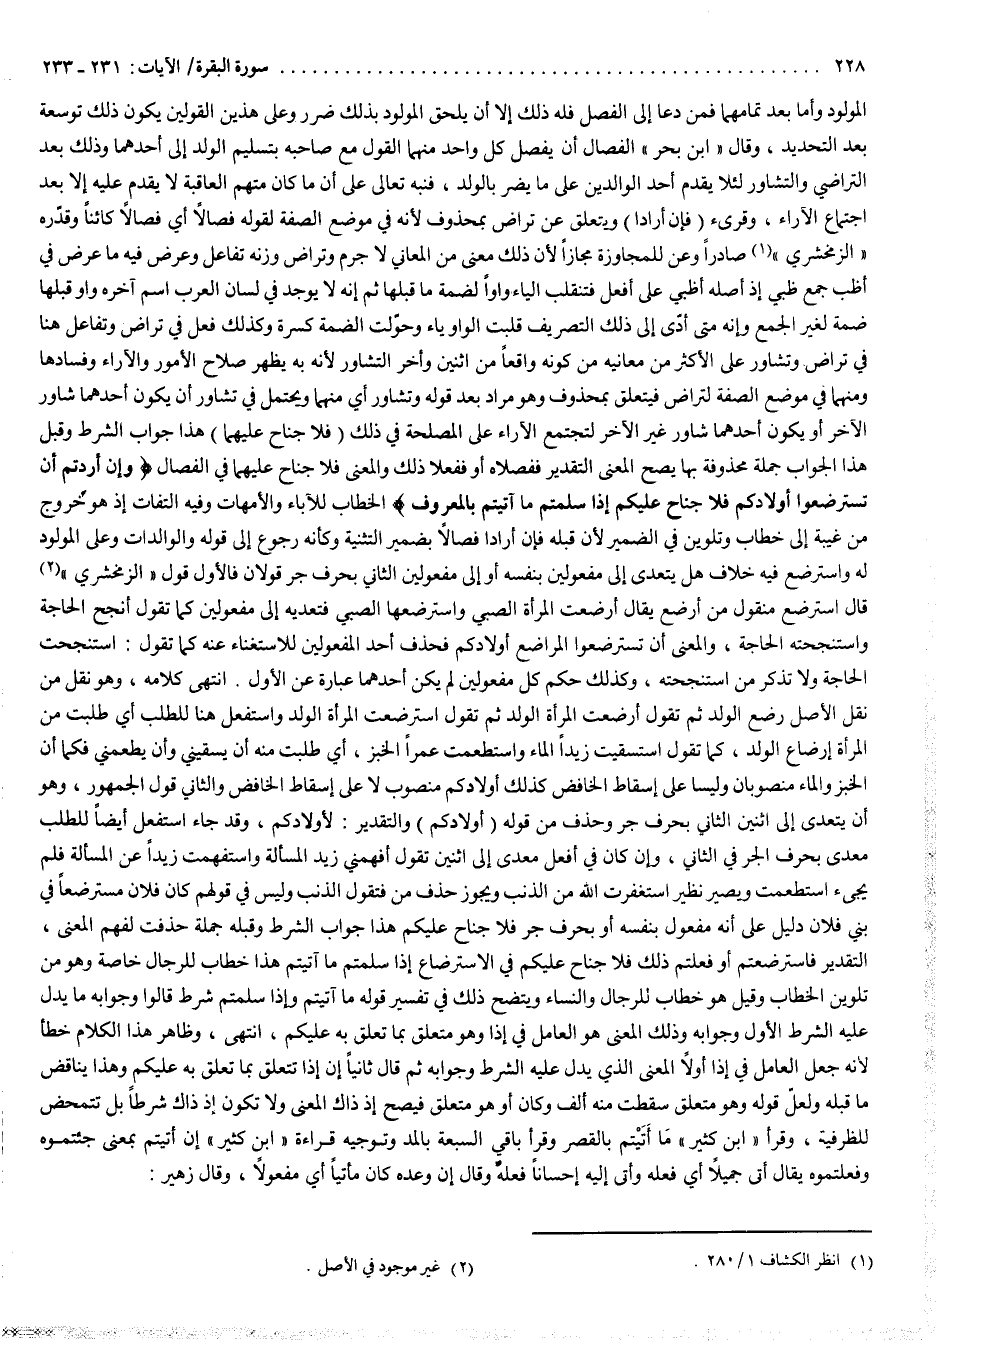 ٢٢٨ .................................................. سورة البقرة/ الآيات: ٢٣١ - ٢٣٣
المولود وأما بعد تمامهما فمن دعا إلى الفصل فله ذلك إلا أن يلحق المولود بذلك ضرر وعلى هذين القولين يكون ذلك توسعة
بعد التحديد ، وقال « ابن بحر » الفصال أن يفصل كل واحد منهما القول مع صاحبه بتسليم الولد إلى أحدهما وذلك بعد
التراضي والتشاور لئلا يقدم أحد الوالدين على ما يضر بالولد ، فنبه تعالى على أن ما كان متهم العاقبة لا يقدم عليه إلا بعد
اجتماع الآراء ، وقرىء ( فإن أرادا ) ويتعلق عن تراض بمحذوف لأنه في موضع الصفة لقوله فصالاً أي فصالاً كائناً وقدّره
« الزمخشري »(١) صادراً وعن للمجاوزة مجازاً لأن ذلك معنى من المعاني لا جرم وتراض وزنه تفاعل وعرض فيه ما عرض في
أظب جمع ظبي إذ أصله أظبي على أفعل فتنقلب الياء واواً لضمة ما قبلها ثم إنه لا يوجد في لسان العرب اسم آخره واو قبلها
ضمة لغير الجمع وإنه متى أدّى إلى ذلك التصريف قلبت الواو ياء وحوّلت الضمة كسرة وكذلك فعل في تراض وتفاعل هنا
في تراض وتشاور على الأكثر من معانيه من كونه واقعاً من اثنين وأخر التشاور لأنه به يظهر صلاح الأمور والآراء وفسادها
ومنهما في موضع الصفة لتراض فيتعلق بمحذوف وهو مراد بعد قوله وتشاور أي منهما ويحتمل في تشاور أن يكون أحدهما شاور
الآخر أو يكون أحدهما شاور غير الآخر لتجتمع الآراء على المصلحة في ذلك ( فلا جناح عليهما ) هذا جواب الشرط وقبل
هذا الجواب جملة محذوفة بها يصح المعنى التقدير ففصلاه أو ففعلا ذلك والمعنى فلا جناح عليهما في الفصال ﴿ وإن أردتم أن
تسترضعوا أولادكم فلا جناح عليكم إذا سلمتم ما آتيتم بالمعروف ﴾ الخطاب للآباء والأمهات وفيه التفات إذ هو خروج
من غيبة إلى خطاب وتلوين في الضمير لأن قبله فإن أرادا فصالاً بضمير التثنية وكأنه رجوع إلى قوله والوالدات وعلى المولود
له واسترضع فيه خلاف هل يتعدى إلى مفعولين بنفسه أو إلى مفعولين الثاني بحرف جر قولان فالأول قول « الزمخشري »(٢)
قال استرضع منقول من أرضع يقال أرضعت المرأة الصبي واسترضعها الصبي فتعديه إلى مفعولين كما تقول أنجح الحاجة
واستنجحته الحاجة ، والمعنى أن تسترضعوا المراضع أولادكم فحذف أحد المفعولين للاستغناء عنه كما تقول : استنجحت
الحاجة ولا تذكر من استنجحته ، وكذلك حكم كل مفعولين لم يكن أحدهما عبارة عن الأول . انتهى كلامه ، وهو نقل من
نقل الأصل رضع الولد ثم تقول أرضعت المرأة الولد ثم تقول استرضعت المرأة الولد واستفعل هنا للطلب أي طلبت من
المرأة إرضاع الولد ، كما تقول استسقيت زيداً الماء واستطعمت عمراً الخبز ، أي طلبت منه أن يسقيني وأن يطعمني فكما أن
الخبز والماء منصوبان وليسا على إسقاط الخافض كذلك أولادكم منصوب لا على إسقاط الخافض والثاني قول الجمهور ، وهو
أن يتعدى إلى اثنين الثاني بحرف جر وحذف من قوله ( أولادكم ) والتقدير : لأولادكم ، وقد جاء استفعل أيضاً للطلب
معدى بحرف الجر في الثاني ، وإن كان في أفعل معدى إلى اثنين تقول أفهمني زيد المسألة واستفهمت زيداً عن المسألة فلم
يجىء استطعمت ويصير نظير استغفرت الله من الذنب ويجوز حذف من فتقول الذنب وليس في قولهم كان فلان مسترضعاً في
بني فلان دليل على أنه مفعول بنفسه أو بحرف جر فلا جناح عليكم هذا جواب الشرط وقبله جملة حذفت لفهم المعنى ،
التقدير فاسترضعتم أو فعلتم ذلك فلا جناح عليكم في الاسترضاع إذا سلمتم ما آتيتم هذا خطاب للرجال خاصة وهو من
تلوين الخطاب وقيل هو خطاب للرجال والنساء ويتضح ذلك في تفسير قوله ما آتيتم وإذا سلمتم شرط قالوا وجوابه ما يدل
عليه الشرط الأول وجوابه وذلك المعنى هو العامل في إذا وهو متعلق بما تعلق به عليكم ، انتهى ، وظاهر هذا الكلام خطأ
لأنه جعل العامل في إذا أولاً المعنى الذي يدل عليه الشرط وجوابه ثم قال ثانياً إن إذا تتعلق بما تعلق به عليكم وهذا يناقض
ما قبله ولعلّ قوله وهو متعلق سقطت منه ألف وكان أو هو متعلق فيصح إذ ذاك المعنى ولا تكون إذ ذاك شرطاً بل تتمحض
للظرفية ، وقرأ « ابن كثير » مَا أَتَيْتم بالقصر وقرأ باقي السبعة بالمد وتوجيه قراءة « ابن كثير » إن أتيتم بمعنى جئتموه
وفعلتموه يقال أتى جميلاً أي فعله وأتى إليه إحساناً فعله وقال إن وعده كان مأتياً أي مفعولاً ، وقال زهير :
(١) انظر الكشاف ٢٨٠/١ .
(٢) غير موجود في الأصل .